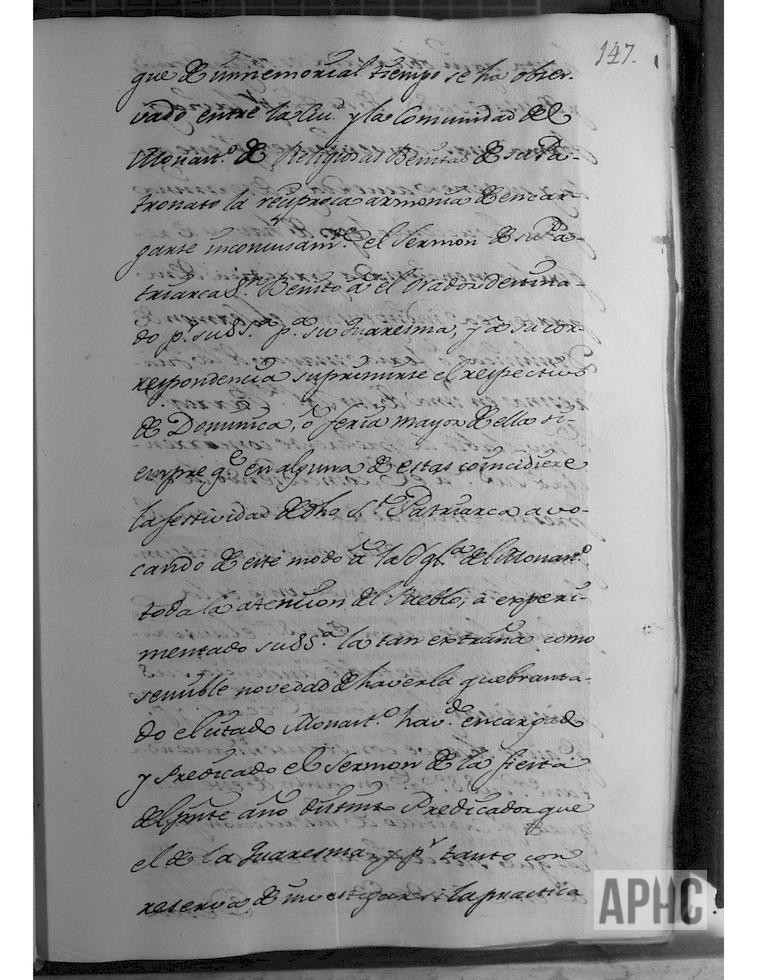 147.
que de inmemorial tiempo se ha obser-
vado entre la Ciu.d y la Comunidad del
Monast.o de Religiosas Benitas de su Pa-
tronato la reciproca armonia de encar-
garse inconcusam.te el Sermon de su Pa-
triarca S.n Benito à el Orador destina-
do p.r su SS.a p.a su Quaresma, y à su cor-
respondencia suprimirse el respectivo
de Dominica, ò feria mayor de ella si-
empre q.e en alguna de estas coincidiere
la festividad de dho S.to Patriarca avo-
cando de este modo à la Ygl.a del Monast.o
toda la atencion del Pueblo, à experi-
mentado su SS.a la tan extraña como
sensible novedad de haverla quebranta-
do el citado Monast.o hav.do encargado
y Predicado el Sermon de la fiesta
del pnte año distinto Predicador que
el de la Quaresma, y p.r tanto con
reserva de investigar si la practica
APHC